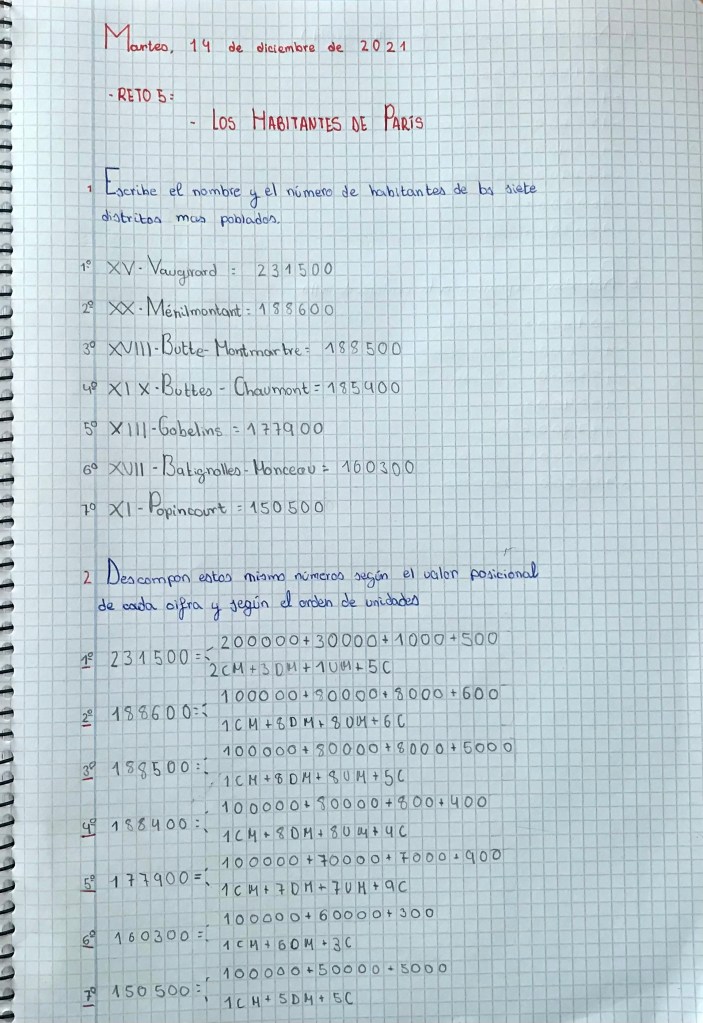 Martes, 14 de diciembre de 2021
- RETO 5:
- LOS HABITANTES DE PARÍS
1 Escribe el nombre y el número de habitantes de los siete
distritos mas poblados.
1º XV - Vaugirard : 231500
2º XX - Ménilmontant : 188600
3º XVIII - Butte - Montmartre = 188500
4º XIX - Buttes - Chaumont = 185400
5º XIII - Gobelins = 177900
6º XVII - Batignolles - Monceau = 160300
7º XI - Popincourt = 150500
2 Descompon estos mismo números según el valor posicional
de cada cifra y según el orden de unidades
200000+30000+1000+500
1º 231500 =
2CM+3DM+1UM+5C
100000+80000+8000+600
2º 188600 =
1CM+8DM+8UM+6C
100000+80000+8000+5000
3º 188500 =
1CM+8DM+8UM+5C
100000+80000+800+400
4º 188400 =
1CM+8DM+8UM+4C
100000+70000+7000+900
5º 177900 =
1CM+7DM+7UM+9C
100000+60000+300
6º 160300 =
1CM+6DM+3C
100000+50000+5000
7º 150500 =
1CM+5DM+5C